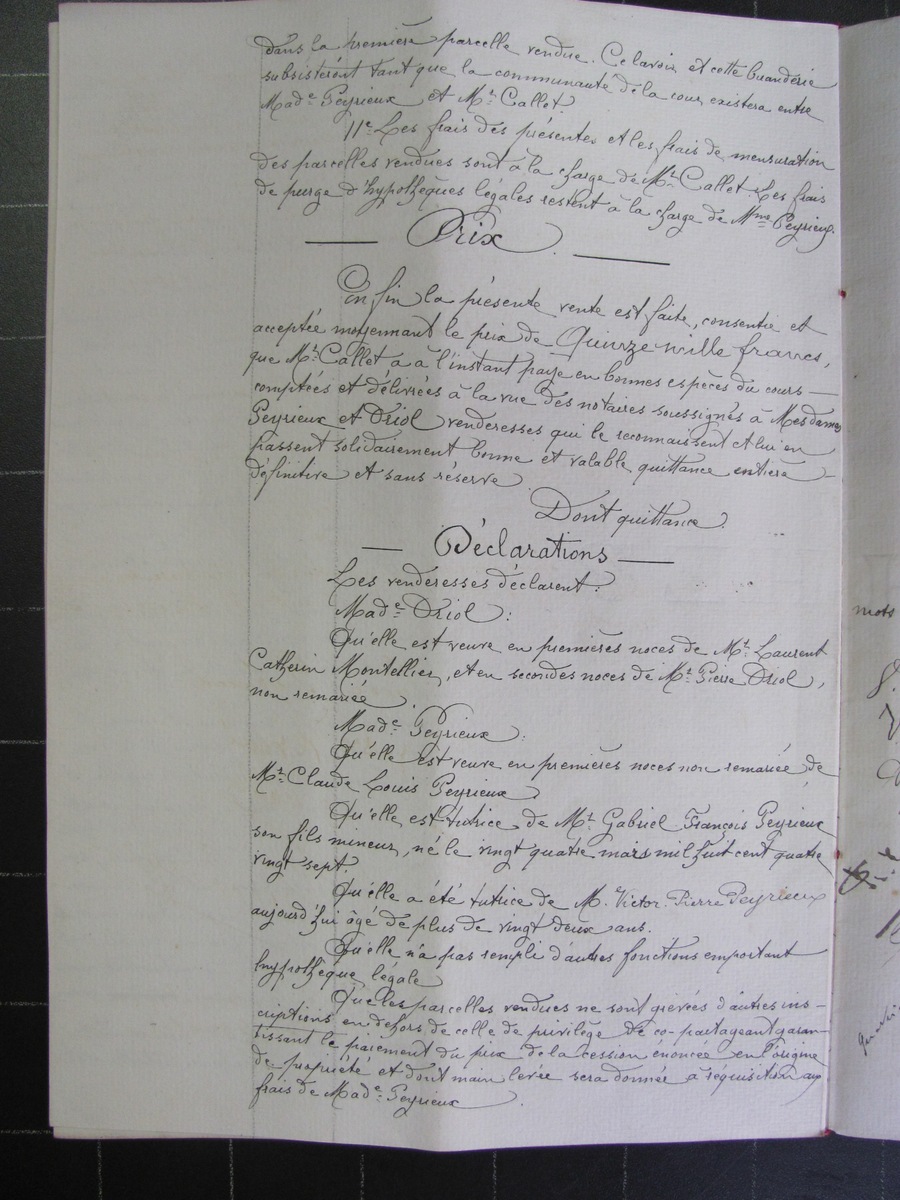 dans la première parcelle vendue. Ce lavoir et cette buanderie
subsisteront tant que la communauté de la cour existera entre
Made Peyrieux et Mr. Callet.
11e. Les frais des présentes et les frais de mensuration
des parcelles vendues sont à la charge de Mr. Callet. Les frais
de purge d'hypothèques légales restent à la charge de Mme Peyrieux.
— Prix —
En fin la présente vente est faite, consentie et
acceptée moyennant le prix de Quinze mille francs,
que Mr. Callet a à l'instant payé en bonnes espèces du cours —
comptées et délivrées à la vue des notaires soussignés à Mesdames
Peyrieux et Driol venderesses qui le reconnaissent et lui en
passent solidairement bonne et valable quittance entière —
définitive et sans réserve.
Dont quittance.
— Déclarations —
Les venderesses déclarent:
Made Driol:
Qu'elle est veuve en premières noces de Mr. Laurent
Catherin Montellier, et en secondes noces de Mr. Pierre Driol,
non remariée.
Made Peyrieux:
Qu'elle est veuve en premières noces non remariée de
Mr. Claude Louis Peyrieux.
Qu'elle est tutrice de Mr. Gabriel François Peyrieux
son fils mineur, né le vingt quatre mars mil huit cent quatre
vingt sept.
Qu'elle a été tutrice de M. Victor Pierre Peyrieux
aujourd'hui âgé de plus de vingt deux ans.
Qu'elle n'a pas rempli d'autres fonctions emportant
hypothèque légale.
Que les parcelles vendues ne sont grevées d'autres ins-
criptions en dehors de celle de privilège de co-partageant garan-
tissant le paiement du prix de la cession énoncée en l'origine
de propriété et dont main levée sera donnée à réquisition aux
frais de Made Peyrieux.
mots